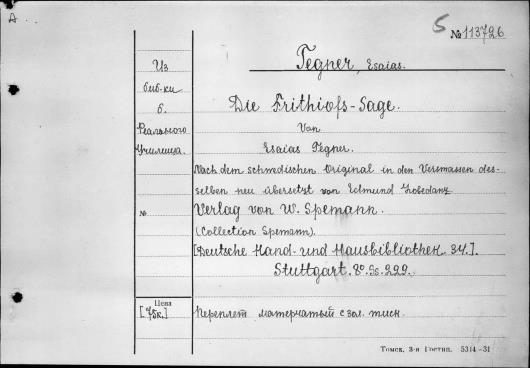 A
5 № 113726
Tegner, Esaias.
Из
биб-ки
б.
Реального
Училища.
Die Frithiofs-Sage.
Von
Esaias Tegner.
Nach dem schwedischen Original in den Versmassen des-
selben neu übersetzt von Edmund Zobedanz
Verlag von W. Spemann.
(Collection Spemann).
[Deutsche Hand- und Hausbibliothek. 34.].
Stuttgart. 8º. S. 222.
№
Цена
[75к.]
Переплет матерчатый с зол. тисн.
Томск, 3-я Гостип. 5314-31